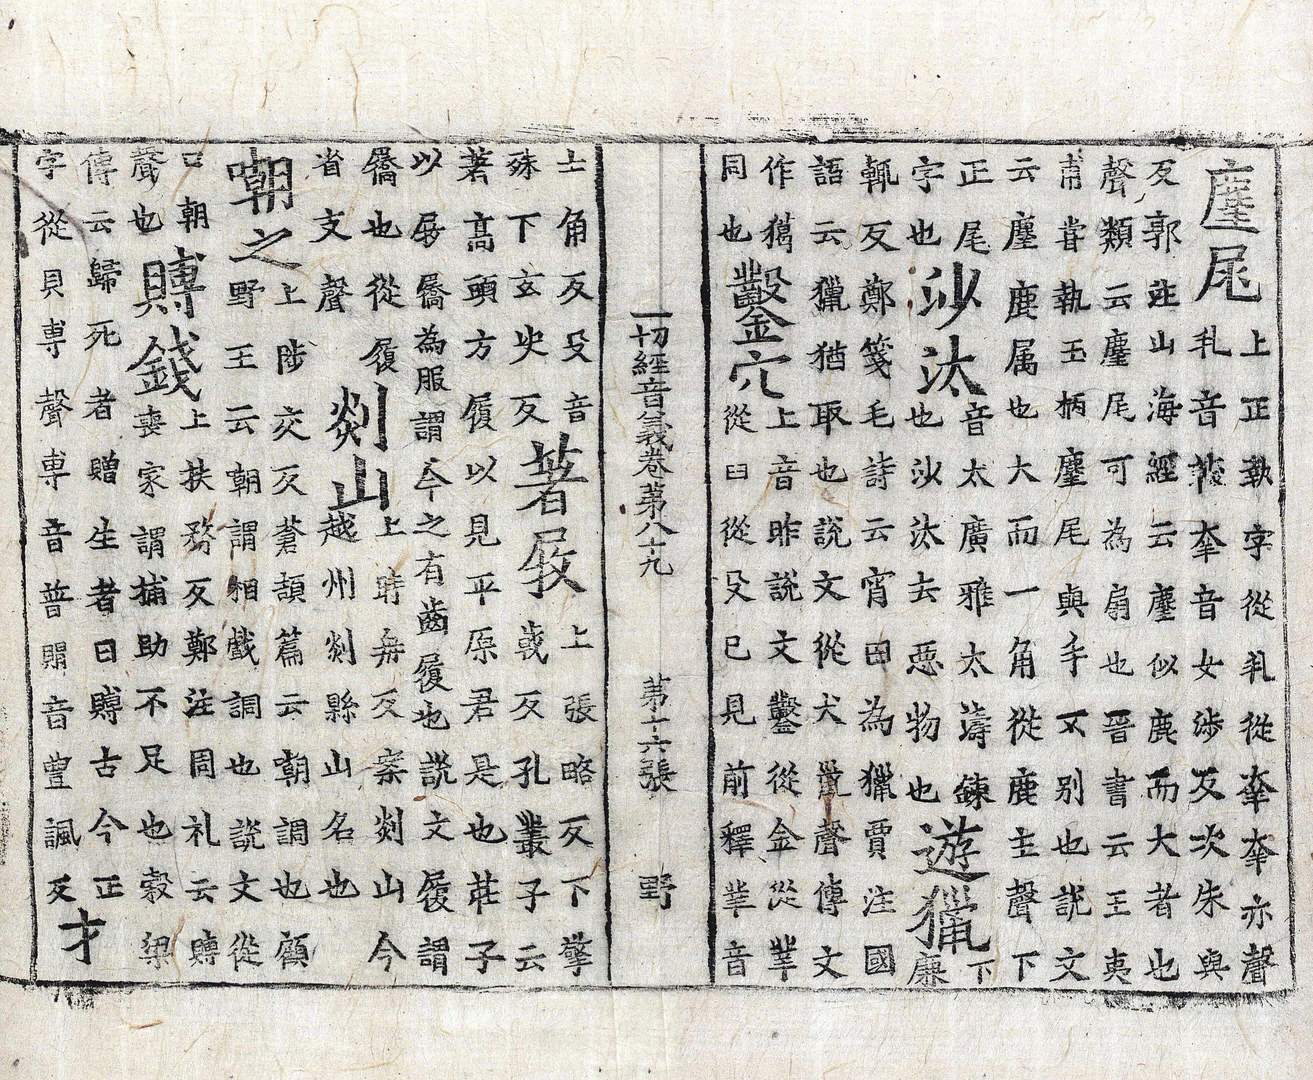 麈尾
上正執字從丮從㚔㚔亦聲
丮音㦸㚔音女涉反次朱與
反郭注山海經云麈似鹿而大者也
聲類云麈尾可為扇也晉書云王夷
甫甞執玉柄麈尾與手不別也說文
云麈鹿属也大而一角從鹿主聲下
正尾
字也
沙汰
音太廣雅太濤鍊
也沙汰去惡物也
遊獵
下
廉
輒反鄭箋毛詩云宵田為獵賈注國
語云獵猶取也說文從犬巤聲傳文
作獦
同也
鑿穴
上音昨說文鑿從金從丵
從臼從殳已見前釋丵音
一切經音義卷第八十九 第十六張 野
士角反殳音
殊下玄史反
著屐
上張略反下擎
㦸反孔叢子云
著高頭方履以見平原君是也莊子
以屐屩為服謂今之有齒履也說文履謂
屩也從履
省支聲
剡山
上時冉反案剡山今
越州剡縣山名也
嘲之
上陟交反蒼頡篇云嘲調也顧
野王云嘲謂相戲調也說文從
口朝
聲也
賻錢
上扶務反鄭注周礼云賻
喪家謂補助不足也穀梁
傳云歸死者贈生者曰賻古今正
字從貝専聲専音普賵音豊諷反
才